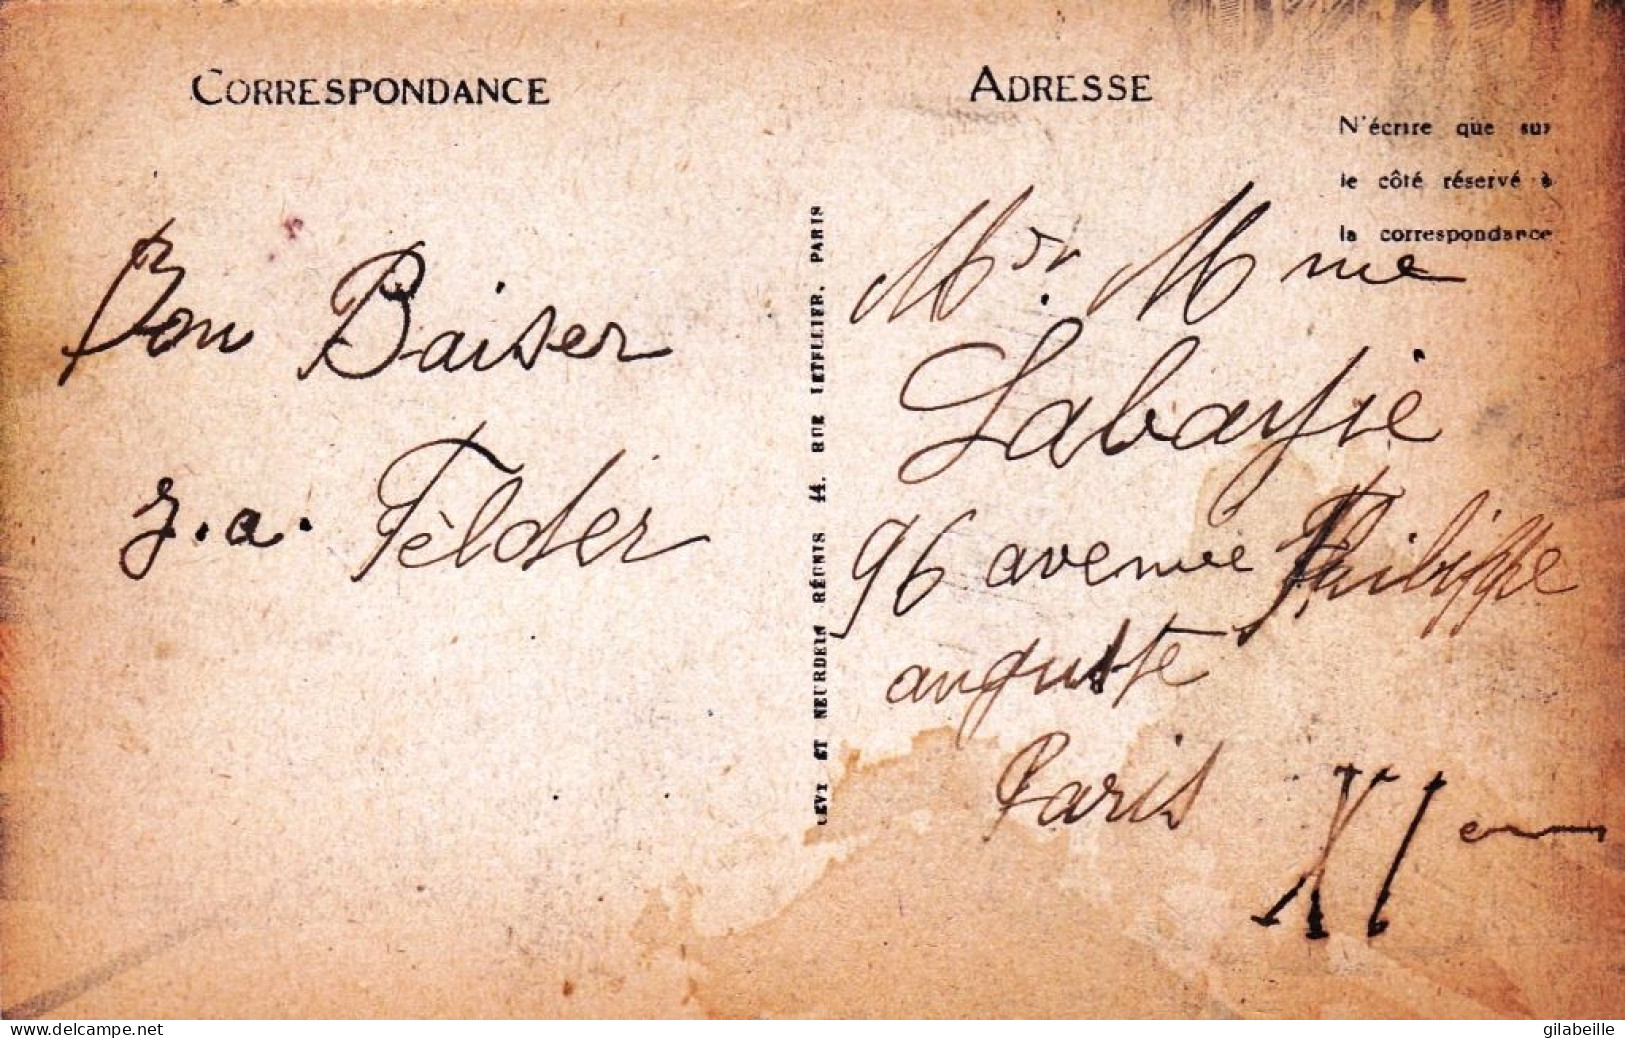 CORRESPONDANCE
Bon Baiser
J.a. Fèlder
LEVY ET NEURDEIN RÉUNIS 44. RUE LETELLIER. PARIS
ADRESSE
N'écrire que sur
le côté réservé à
la correspondance
Mr. Mme
96 avenue Philippe
auguste
Paris XIem
delcampe.net
gilabeille